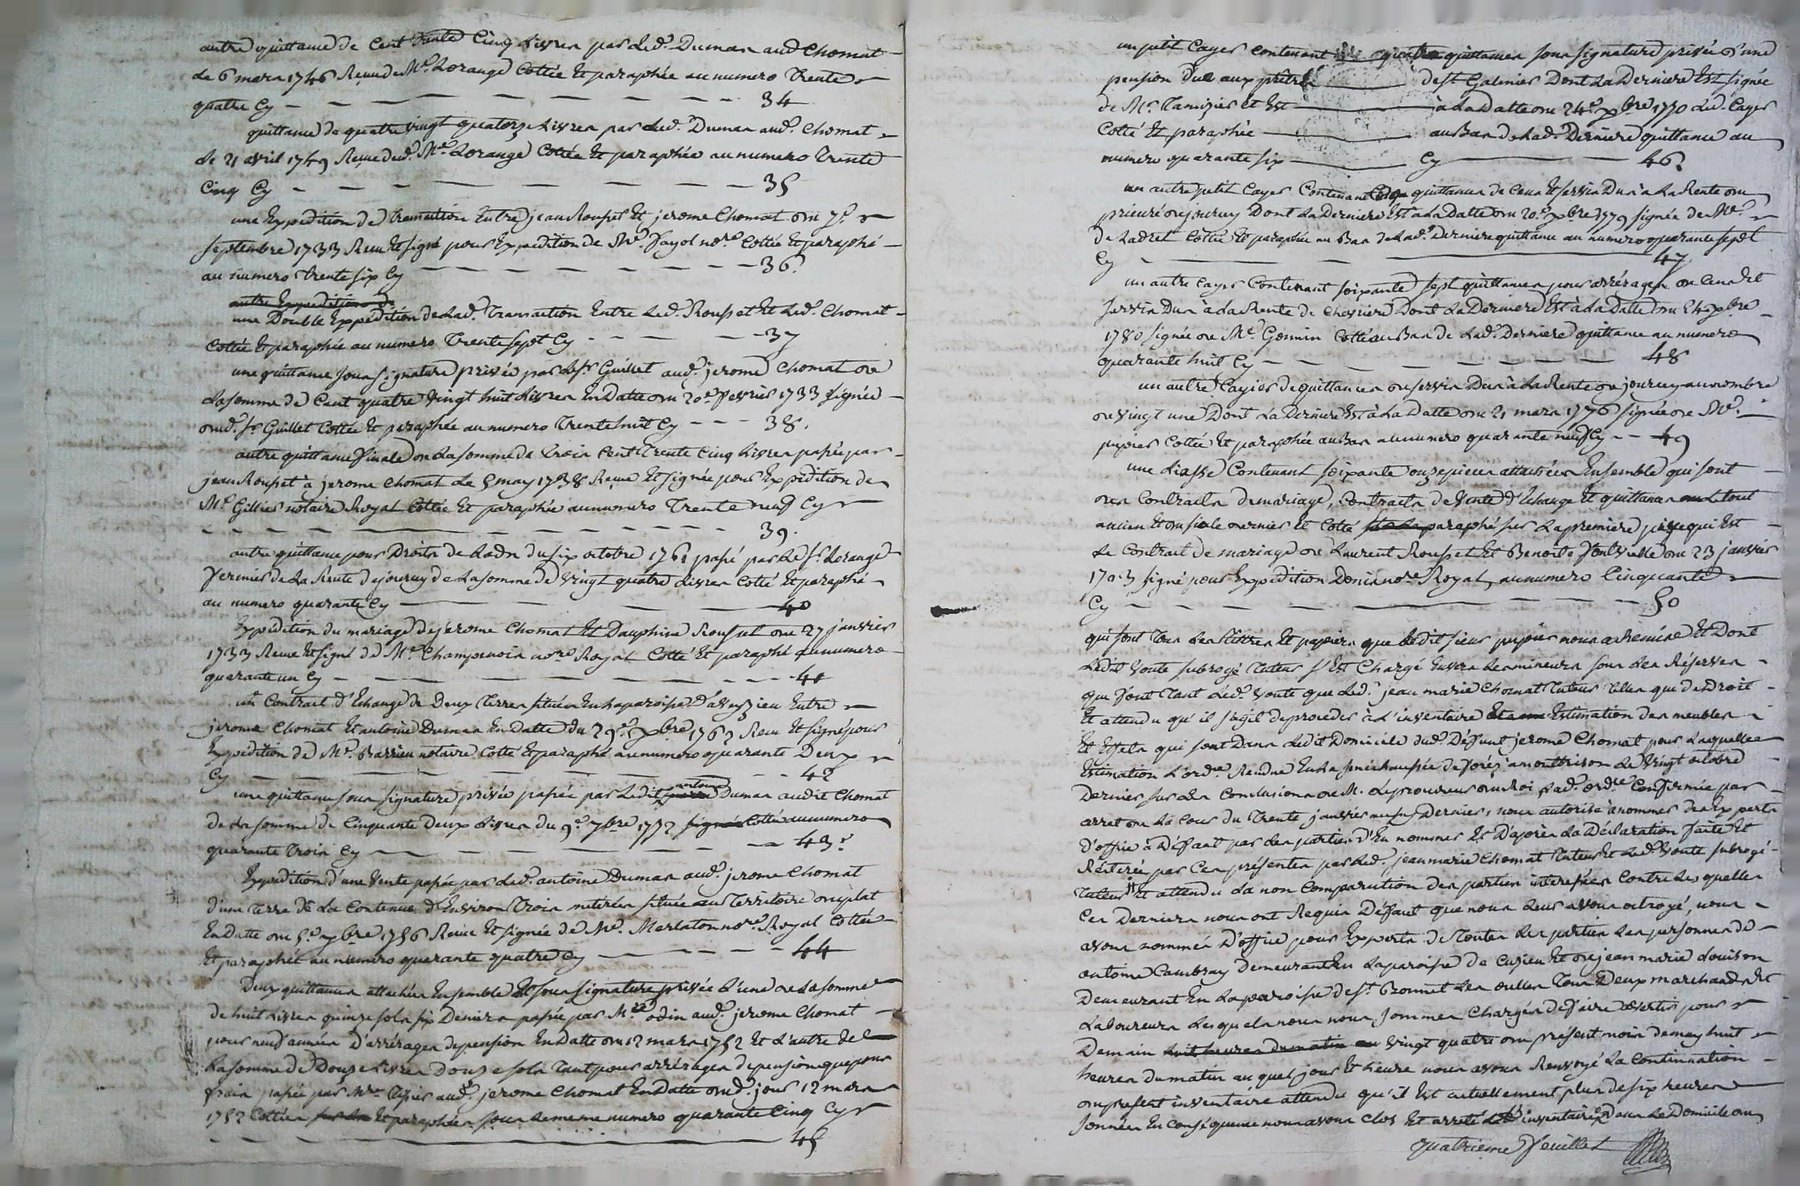 autre quittance de Cent trente Cinq Livres par led. Dumas aud Chomat
Le 6 mars 1746 Reçue de Me Lorange Cottée Et paraphée au numero Trente
quatre Cy 34
quittance de quatre vingt quatorze Livres par led. Dumas aud. Chomat
Le 21 avril 1749 Reçue dud. Me Lorange Cottée Et paraphée au numero Trente
Cinq Cy 35
une Expedition de transaction Entre jean Rousset Et jerome Chomat du 7e
Septembre 1733 Reçue Et signé pour Expedition de Me. Fayol nore Cottée Et paraphé
au numero Trente six Cy 36
autre Expedition de
une Double Expédition de Lad. Transaction Entre Led. Rousset Et Led. Chomat
Cottée Et paraphée au numero Trente sept Cy 37
une quittance sous signature privée par Le Sr Guillet aud. jerome Chomat de
La somme de Cent quatre vingt huit Livres En datte du 20e fevrier 1733 signée
dud. Sr Guillet Cottée Et paraphée au numero Trente huit Cy 38.
autre quittance finale de La somme de Trois Cent Trente Cinq Livres passée par
jean Rousset à jerome Chomat Le 5 may 1738 Reçue Et signée pour Expedition de
Me Gillier notaire Royal Cottée Et paraphée au numero Trente neuf Cy
39.
autre quittance pour Droits de Lods du six octobre 1761 passé par Le Sr Lorange
fermier de La Rente de jourcey de La somme de vingt quatre Livres Cotté Et paraphé
au numero quarante Cy 40
Expedition du mariage de jerome Chomat Et Dauphine Rousset du 27 janvier
1733 Reçue Et signé de Me Champenois nore Royal Cotté Et paraphé au numero
quarante un Cy 41
un Contrat d'Echange de Deux Terres situées En La paroisse d'aveyzieu Entre
jerome Chomat Et antoine Dumas En Datte du 29e xbre 1762 Reçu Et signé pour
Expedition de Me Barrieu notaire Cotté Et paraphé au numero quarante Deux
Cy 42
une quittance sous signature privée passée par Ledit antoine Dumas audit Chomat
de La somme de Cinquante Deux Livres du 9e 7bre 1752 signée Cotté au numero
quarante Trois Cy 43
Expedition d'une vente passée par Led. antoine Dumas aud. jerome Chomat
d'une Terre de La Contenue d'Environ Trois meterées située au Territoire du plat
En Datte du 5e 1756 Reçue Et signée de Me. Merlaton nore Royal Cottée
Et paraphée au numero quarante quatre Cy 44
Deux quittances attachées Ensemble Et sous signature privée L'une de La somme
de huit Livres quinze sols six Deniers passée par Mre odin aud. jerome Chomat
pour neuf années D'arrérages de pension En Datte du 12 mars 1752 Et L'autre de
La somme de Douze Livres Douze sols Tant pour arrérages de pension que pour
frais passée par Mre aud. jerome Chomat En Datte dud. jour 12 mars
1752 Cottées Et paraphées sous Le meme numero quarante Cinq Cy
45
un petit Cayer Contenant quatre quittances sous signature privée d'une
pension Due aux pretres de St Galmier Dont La Derniere Est signée
de Mr Tamisier Et Est à La Datte du 24e xbre 1750 Led. Cayer
Cotté Et paraphée au Bas de Lad. Derniere quittance au
numero quarante six Cy 46
un autre petit Cayer Contenant quittances de Cens Et servis Dus à La Rente du
prieuré de jourcey Dont La Derniere Est à La Datte du 20e xbre 1779 signée de Me.
de Ladret Cotté Et paraphée au Bas de Lad. Derniere quittance au numero quarante sept
Cy 47
un autre Cayer Contenant soixante sept quittances pour arrérages de Cens Et
servis Dus à La Rente de Chevrieres Dont La Derniere Est à La Datte du xbre
1780 signée de Me. Gonnin Cotté au Bas de Lad. Derniere quittance au numero
quarante huit Cy 48
un autre Cayier de quittances de servis Dus à La Rente de jourcey au nombre
de vingt une Dont La Derniere Est à La Datte du 21 mars 1776 signée de Me.
pupier Cotté Et paraphée au Bas au numero quarante neuf Cy 49
une Liasse Contenant soixante onze pieces attachées Ensemble qui sont
des Contracts de mariage, Contracts de vente d'Echange Et quittances Le tout
ancien Et du siecle dernier Et Cotté paraphé sur La premiere piece qui Est
Le Contrat de mariage de Laurent Rousset Et Benoite fontvielle du 23 janvier
1703 signé pour Expedition Denis nore Royal, au numero Cinquante
Cy 50
qui sont Tous Les Tittres Et papiers que Ledit sieur pupier nous a Remise Et Dont
Ledit Voute subrogé Tuteur s'Est Chargé Envers Les mineurs sous Les Réserves
que font Tant Led. Voute que Led. jean marie Chomat Tuteur Telles que de droit
Et attendu qu'il s'agit de proceder à L'inventaire Et Estimation des meubles
Et Effets qui sont Dans Ledit Domicile dud. Deffunt jerome Chomat pour Laquelle
Estimation L'ordce Rendue En La senechaussée de forez à montbrison Le vingt octobre
Dernier sur Les Conclusions de M. Le procureur du Roi Lad. ordce Confirmée par
arret de La Cour du Trente janvier aussy Dernier, nous autorise à nommer des Experts
D'office à Deffaut par Les parties d'En nommer Et D'après La Déclaration faite Et
Réitérée par Ces présentes par Led. jean marie Chomat Tuteur Et Led. Voute subrogé
Tuteur Et attendu La non Comparution des parties interessées Contre Lesquelles
Ces Derniers nous ont Requis Deffaut que nous Leur avons octroyé, nous
avons nommés D'office pour Experts de Toutes Les parties Les personnes de
antoine Cambray demeurant En La paroisse de Cuzieu Et de jean marie Louison
Demeurant En La paroisse de St Bonnet Les oulles Tous Deux marchands Et
Laboureurs Lesquels nous nous sommes Chargés de faire avertir pour
Demain huit heures du matin vingt quatre du present mois de may huit
heures du matin auquel jour Et heure nous avons Renvoyé La Continuation
du present inventaire attendu qu'il Est actuellement plus de six heures
sonnées En Conséquence nous avons Clos Et arreté inventaire Dans Le Domicile du
quatrieme feuillet